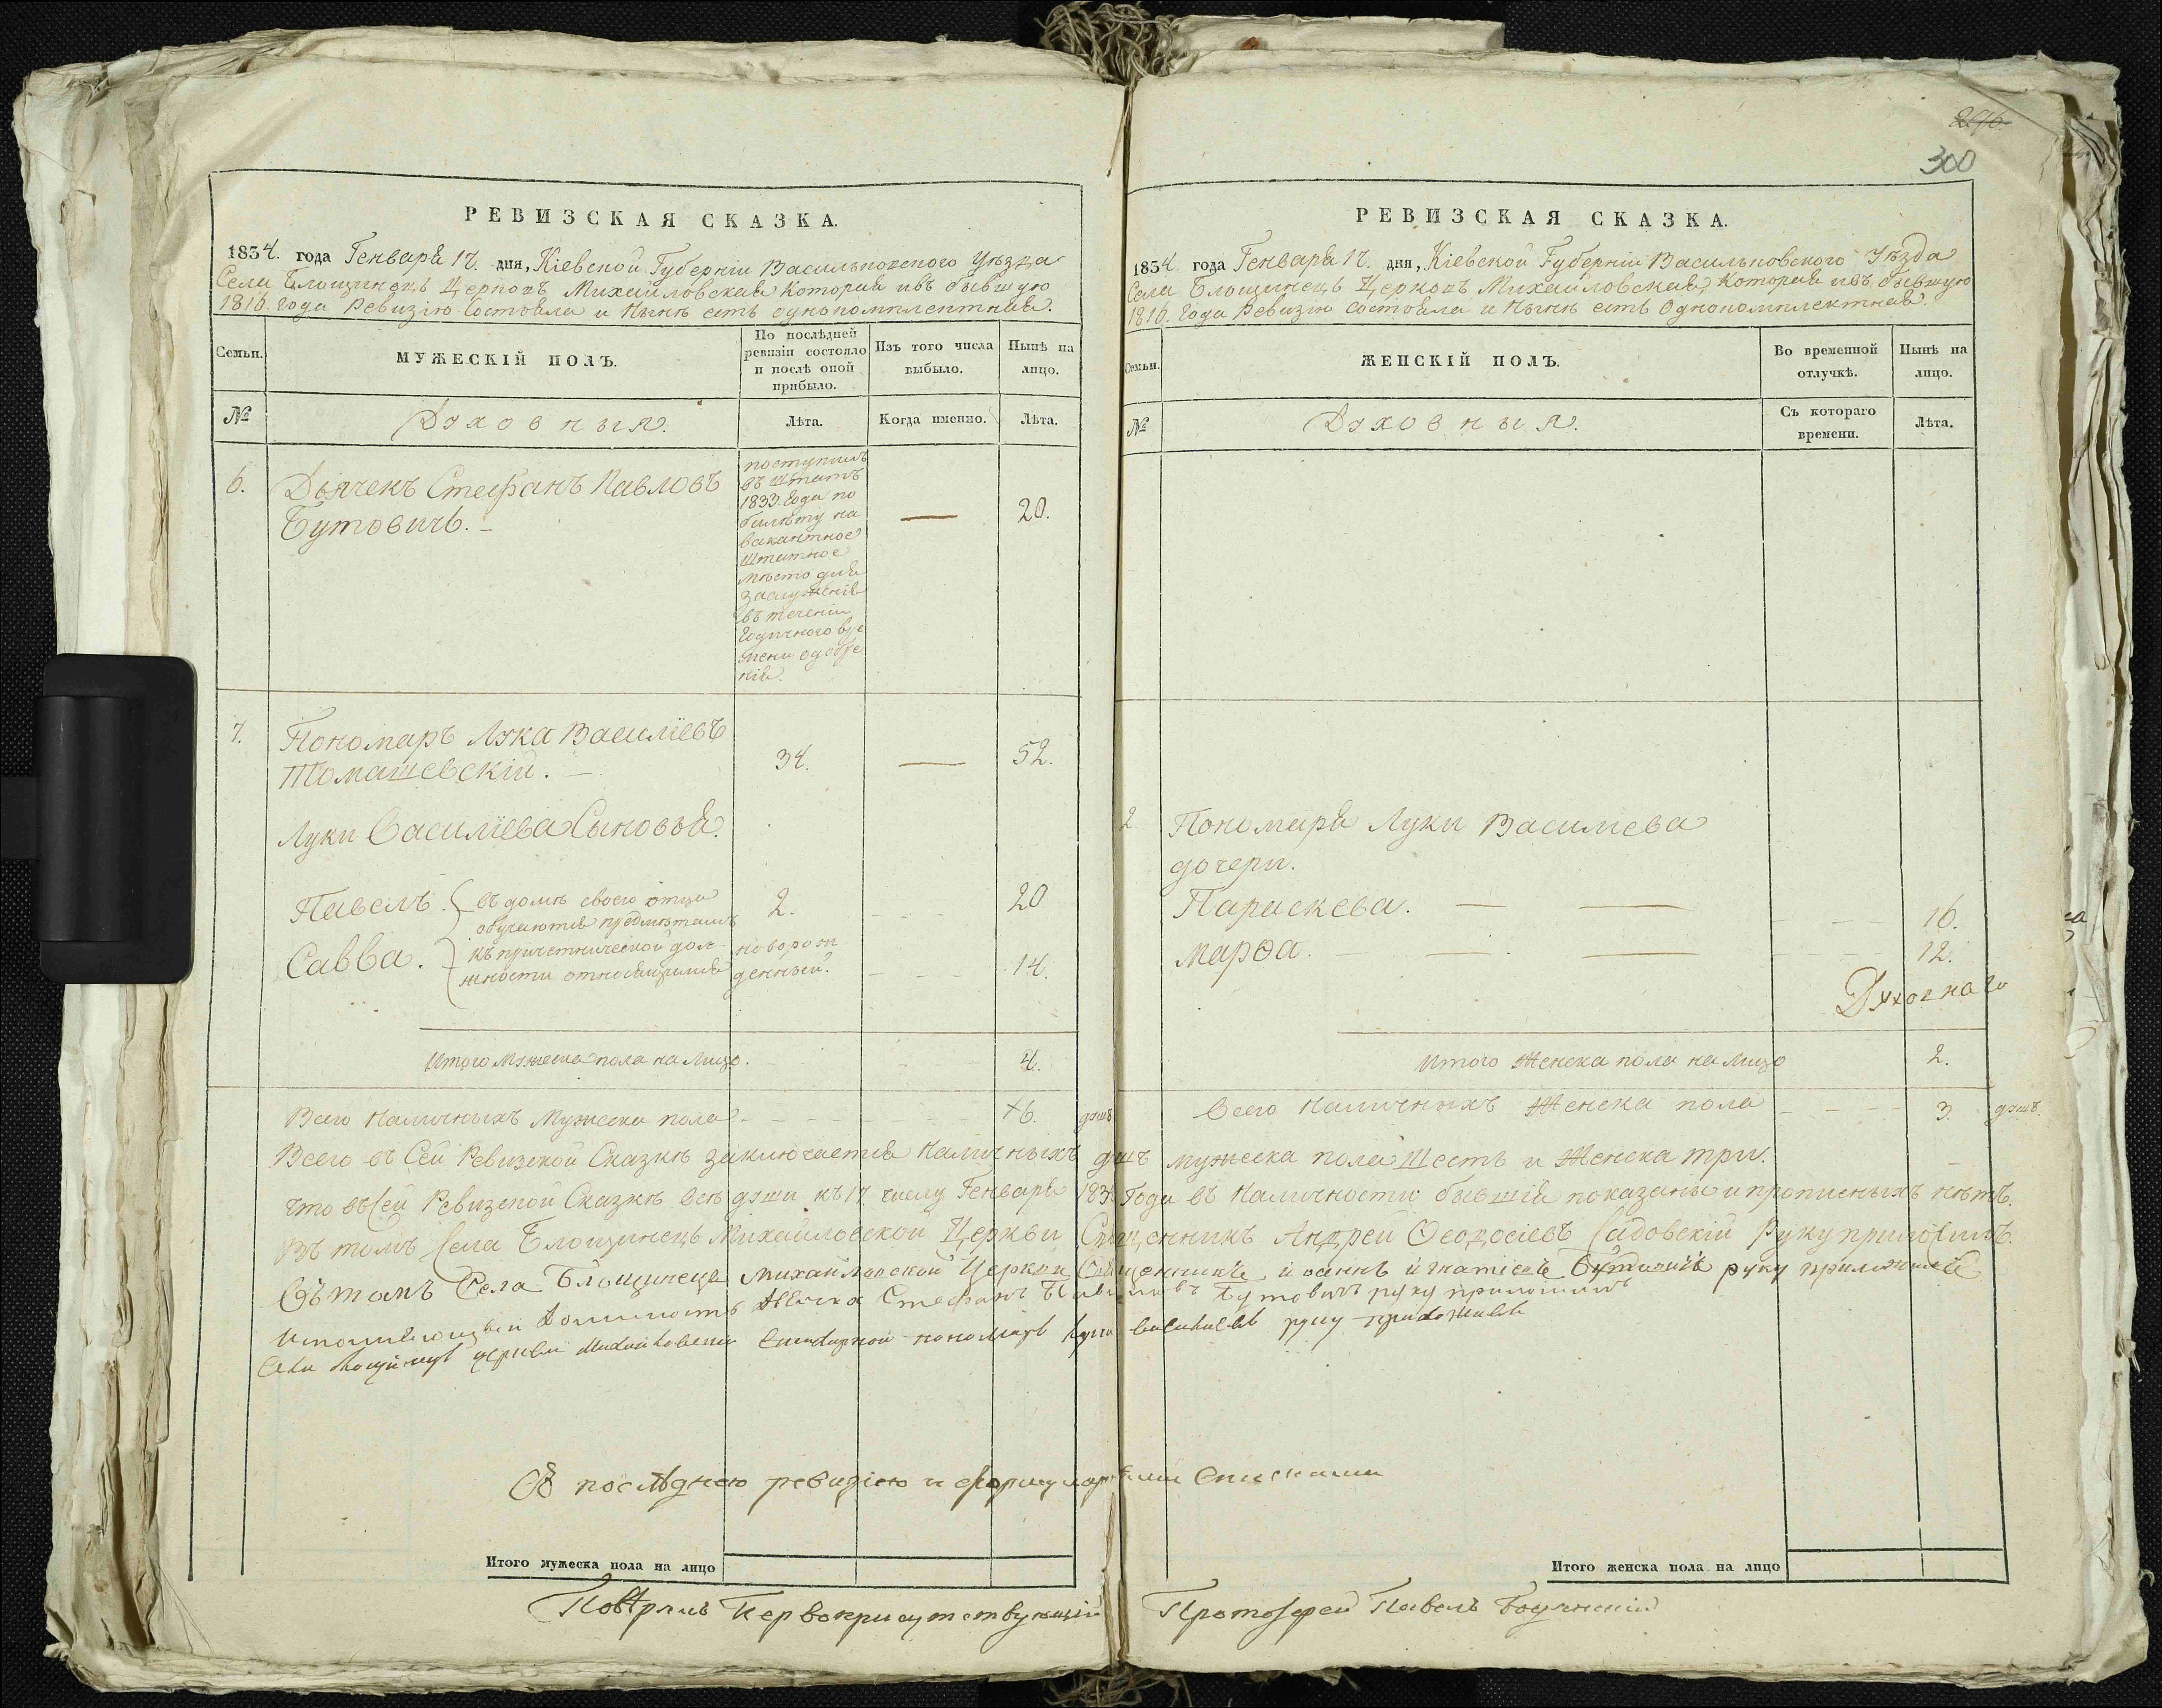 296.
300
РЕВИЗСКАЯ СКАЗКА.
1834. года Генваря 17. дня, Кіевской Губерніи Васильковского Уѣзда
Села Блощинецъ Церковъ Михайловская Которая ивъ бывшую
1816. Года Ревизію Состояла и Нынѣ есть однокомплектная.
Семьи.
МУЖЕСКІЙ ПОЛЪ.
По послѣдней
ревизіи состояло
и послѣ оной
прибыло.
Изъ того числа
выбыло.
Нынѣ на
лицо.
№
Духовныя.
Лѣта.
Когда именно.
Лѣта.
6.
Дьячекъ Стефанъ Павловъ
Бутовичь. –
поступилъ
въ штатъ
1833. Года по
билѣту на
вакантное
штатное
мѣсто для
заслуженія
въ теченіи
Годичного вре
мени одобре
нія.
—
20.
7.
Пономарь Лука Василіевъ
Томашевскій. –
34.
—
52.
Луки Василіева Сыновья.
Павелъ.
въ домѣ своего отца
обучаются предмѣтамъ
2.
20
Савва.
къ причетнической дол-
жности относящимся
новорож
денный.
14.
Итого Мужеска пола на Лицо.
4.
Всего Наличныхъ Мужеска пола
6.
душъ
РЕВИЗСКАЯ СКАЗКА.
1834. года Генваря 17. дня, Кіевской Губерніи Васильковского Уѣзда
Села Блощинецъ Церковъ Михайловская, Которая ивъ бывшую
1816. Года Ревизію состояла и Нынѣ есть Однокомплектная.
Семьи.
ЖЕНСКІЙ ПОЛЪ.
Во временной
отлучкѣ.
Нынѣ на
лицо.
№
Духовныя.
Съ котораго
времени.
Лѣта.
2
Пономаря Луки Василіева
дочери.
Параскева. — —
16.
Марѳа. — — —
12.
Духовнаго
Итого Женска пола на Лицо
2.
Всего Наличныхъ Женска пола
3.
душъ.
Всего въ Сей Ревизской Сказкѣ заключается Наличныхъ душъ мужеска пола Шесть и Женска три.
Что въ Сей Ревизской Сказкѣ всѣ души къ 17 числу Генваря 183 Года въ Наличности бывшія показаны и прописныхъ нѣтъ.
Въ томъ Села Блощинецъ Михайловской Церкви Священникъ Андрей Ѳеодосіевъ Садовскій Руку приложилъ.
Въ томъ Села Блощинецъ Михайловской Церкви Священникъ іоаннъ игнатіевъ Бутовичь руку приложилъ
Исполняющій должность дьячка Стефанъ Павловъ Бутовичъ руку приложилъ
Села церкви Михайловской пономарь Лука василіевъ руку приложилъ
Съ послѣднею ревизіею и формулярными Списками
Итого мужеска пола на лицо
Итого женска пола на лицо
Повѣрялъ Первоприсутствующій Протоіерей Павелъ